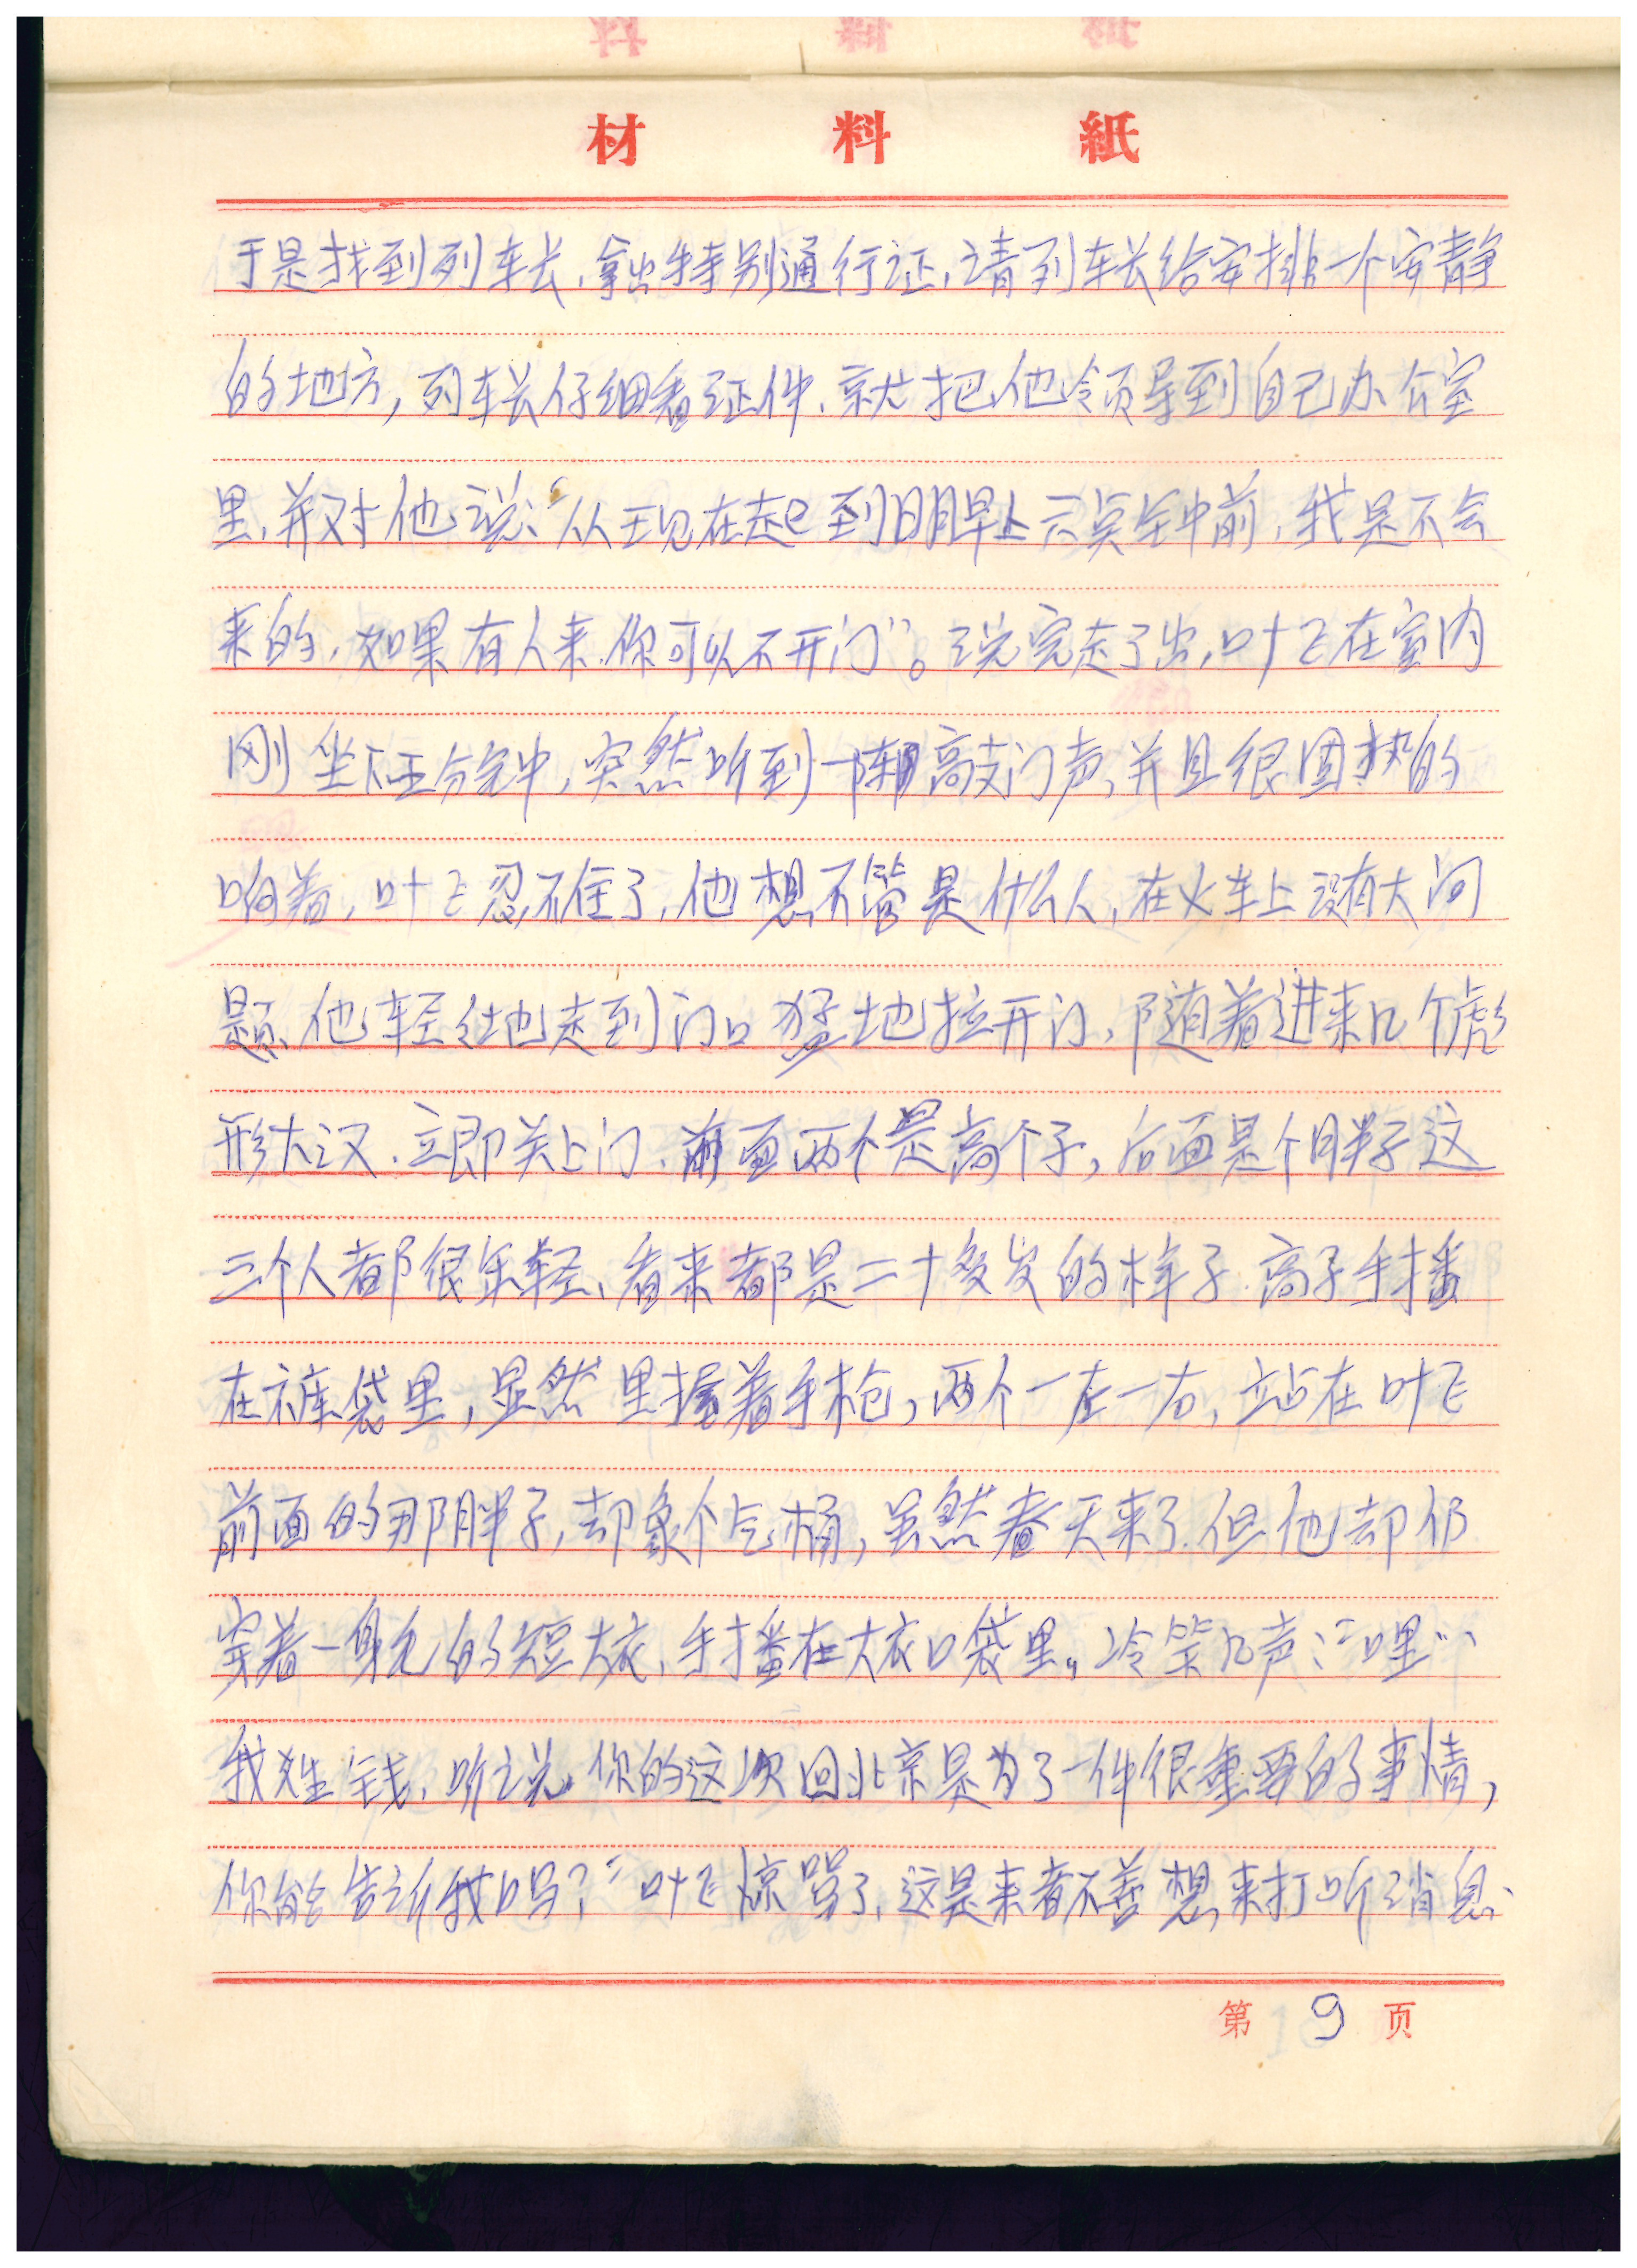 材料紙
于是找到列车长,拿出特别通行证,请列车长给安排一个安静
的地方,列车长仔细看证件、就把他领导到自己办公室
里,并对他说:“从现在起到明早上六点钟前,我是不会
来的,如果有人来、你可以不开门”。说完走了出,叶飞在室内
刚坐下五分钟,突然听到一阵敲门声,并且很固执的
响着,叶飞忍不住了,他想不管是什么人,在火车上没有大问
题、他轻轻地走到门口猛地拉开门,随着进来几个彪
形大汉.立即关上门、前面两个是高个子,后面是个胖子这
三个人都很年轻、看来都是二十多岁的样子.高子手播
在裤袋里,显然里握着手枪,两个一左一右,站在叶飞
前面的那胖子,却象个气桶,虽然春天来了.但他却仍
穿着一身毛的短大衣,手播在大衣口袋里。冷笑几声:“哩…
我姓钱、听说你的这次回北京是为了一件很重要的事情,
你能告诉我吗?”叶飞惊骂了,这是来者不善想来打听消息、
第9页